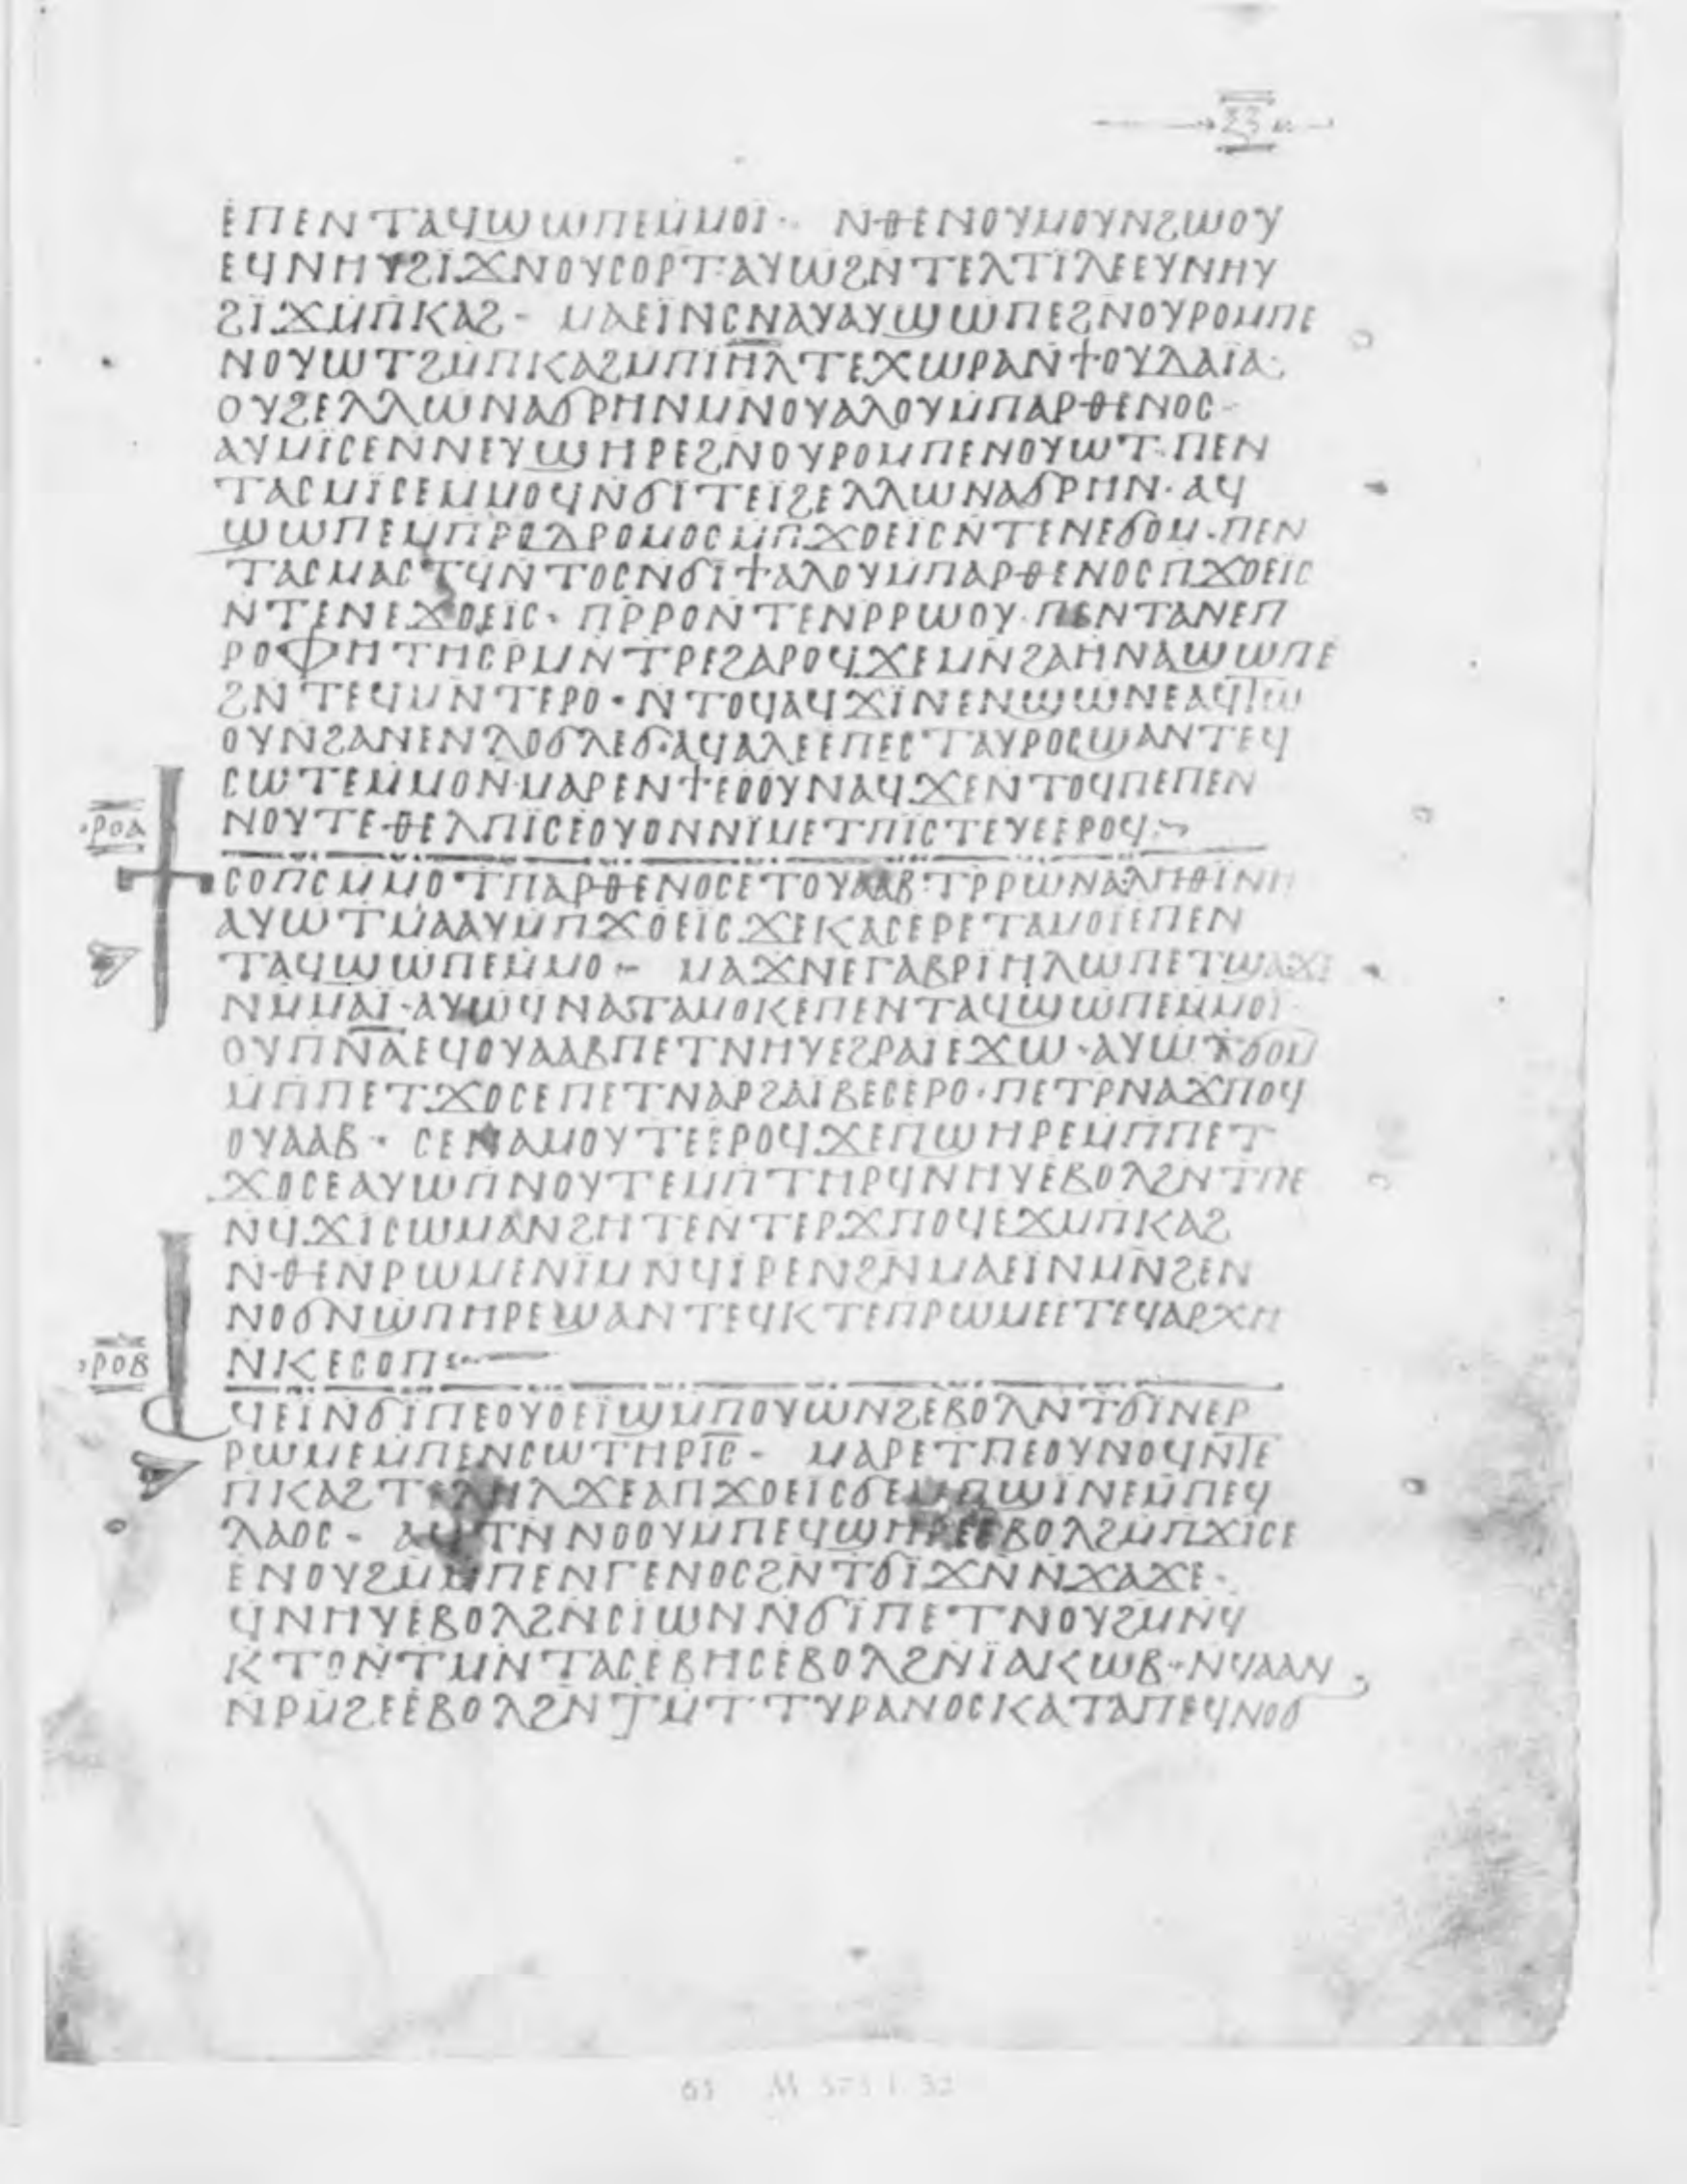 ⲝ̅ⲅ̅
ⲉⲡⲉⲛⲧⲁϥϣⲱⲡⲉⲙ̇ⲙⲟⲓ· ⲛⲑⲉⲛⲟⲩⲙⲟⲩⲛϩⲱⲟⲩ
ⲉϥⲛⲏⲩϩⲓϫⲛⲟⲩⲥⲟⲣⲧ·ⲁⲩⲱϩⲛⲧⲉⲗϯⲗⲉⲉⲩⲛⲏⲩ
ϩⲓϫⲙ̇ⲡⲕⲁϩ- ⲙⲁⲉⲓⲛⲥⲛⲁⲩⲁⲩϣⲱⲡⲉϩⲛⲟⲩⲣⲟⲙⲡⲉ
ⲛⲟⲩⲱⲧϩⲙ̇ⲡⲕⲁϩⲙⲡⲓⲏ̅ⲗ̅ⲧⲉⲭⲱⲣⲁⲛϯⲟⲩⲇⲁⲓⲁ·
ⲟⲩϩⲉⲗⲗⲱⲛⲁϭⲣⲏⲛⲙⲛⲟⲩⲁⲗⲟⲩⲙ̇ⲡⲁⲣⲑⲉⲛⲟⲥ-
ⲁⲩⲙⲓⲥⲉⲛⲛⲉⲩϣⲏⲣⲉϩⲛⲟⲩⲣⲟⲙⲡⲉⲛⲟⲩⲱⲧ·ⲡⲉⲛ
ⲧⲁⲥⲙⲓⲥⲉⲙ̇ⲙⲟϥⲛϭⲓⲧⲉⲓϩⲉⲗⲗⲱⲛⲁϭⲣⲏⲛ·ⲁϥ
ϣⲱⲡⲉⲙ̇ⲡⲣⲟⲇⲣⲟⲙⲟⲥⲙ̇ⲡϫⲟⲉⲓⲥⲛⲧⲉⲛⲉϭⲟⲙ·ⲡⲉⲛ
ⲧⲁⲥⲙⲁⲥⲧϥⲛⲧⲟⲥⲛϭⲓϯⲁⲗⲟⲩⲙ̇ⲡⲁⲣⲑⲉⲛⲟⲥⲡϫⲟⲉⲓⲥ
ⲛⲧⲉⲛⲉϫⲟⲉⲓⲥ· ⲡⲣⲣⲟⲛⲧⲉⲛⲣⲣⲱⲟⲩ·ⲡⲉⲛⲧⲁⲛⲉⲡ
ⲣⲟⲫⲏⲧⲏⲥⲣⲙⲛⲧⲣⲉϩⲁⲣⲟϥϫⲉⲙⲛϩⲁⲏⲛⲁϣⲱⲡⲉ
ϩⲛⲧⲉϥⲙⲛⲧⲉⲣⲟ·ⲛⲧⲟϥⲁϥϫⲓⲛⲉⲛϣⲱⲛⲉⲁϥϥⲓ
ⲟⲩⲛϩⲁⲛⲉⲛⲗⲟϭⲗⲉϭ·ⲁϥⲁⲗⲉⲉⲡⲉⲥⲧⲁⲩⲣⲟⲥϣⲁⲛⲧⲉϥ
ⲥⲱⲧⲉⲙ̇ⲙⲟⲛ·ⲙⲁⲣⲉⲛϯⲉⲟⲟⲩⲛⲁϥϫⲉⲛⲧⲟϥⲡⲉⲡⲉⲛ
ⲛⲟⲩⲧⲉ·ⲑⲉⲗⲡⲓⲥⲉⲟⲩⲟⲛⲛⲓⲙⲉⲧⲡⲓⲥⲧⲉⲩⲉⲉⲣⲟϥ·
ⲣⲟⲁ
ⲥⲟⲡⲥⲙ̇ⲙⲟⲧⲡⲁⲣⲑⲉⲛⲟⲥⲉⲧⲟⲩⲁⲁⲃ·ⲧⲣⲣⲱⲛⲁⲗⲏⲑⲓⲛⲏ
ⲁⲩⲱⲧⲙ̇ⲁⲁⲩⲙ̇ⲡϫⲟⲉⲓⲥϫⲉⲕⲁⲥⲉⲣⲉⲧⲁⲙⲟⲓⲉⲡⲉⲛ
ⲧⲁϥϣⲱⲡⲉⲙ̇ⲙⲟ·- ⲙⲁϫⲛⲉⲅⲁⲃⲣⲓⲏⲗⲱⲡⲉⲧϣⲁϫⲉ
ⲛⲙ̇ⲙⲁⲓ·ⲁⲩⲱϥⲛⲁⲧⲁⲙⲟⲕⲉⲡⲉⲛⲧⲁϥϣⲱⲡⲉⲙ̇ⲙⲟⲓ·
ⲟⲩⲡ̅ⲛ̅ⲁ̅ⲉϥⲟⲩⲁⲁⲃⲡⲉⲧⲛⲏⲩⲉϩⲣⲁⲓⲉϫⲱ·ⲁⲩⲱⲧϭⲟⲙ
ⲙ̇ⲡⲡⲉⲧϫⲟⲥⲉⲡⲉⲧⲛⲁⲣϩⲁⲓⲃⲉⲥⲉⲣⲟ·ⲡⲉⲧⲣⲛⲁϫⲡⲟϥ
ⲟⲩⲁⲁⲃ· ⲥⲉⲛⲁⲙⲟⲩⲧⲉⲉⲣⲟϥϫⲉⲡϣⲏⲣⲉⲙ̇ⲡⲡⲉⲧ
ϫⲟⲥⲉⲁⲩⲱⲡⲛⲟⲩⲧⲉⲙ̇ⲡⲧⲏⲣϥⲛⲏⲩⲉⲃⲟⲗϩⲛⲧⲡⲉ
ⲛϥϫⲓⲥⲱⲙⲁⲛϩⲏⲧⲉⲛⲧⲉⲣϫⲡⲟϥⲉϫⲙⲡⲕⲁϩ
ⲛⲑⲉⲛⲣⲱⲙⲉⲛⲓⲙⲛϥⲓⲣⲉⲛϩⲛⲙⲁⲉⲓⲛⲙⲛϩⲉⲛ
ⲛⲟϭⲛϣⲡⲏⲣⲉϣⲁⲛⲧⲉϥⲕⲧⲉⲡⲣⲱⲙⲉⲉⲧⲉϥⲁⲣⲭⲏ
ⲛⲕⲉⲥⲟⲡ
ⲣⲟⲃ
ϥⲉⲓⲛϭⲓⲡⲉⲟⲩⲟⲉⲓϣⲙ̇ⲡⲟⲩⲱⲛϩⲉⲃⲟⲗⲛⲧϭⲓⲛⲉⲣ
ⲣⲱⲙⲉⲙ̇ⲡⲉⲛⲥⲱⲧⲏⲣⲓ̅ⲥ̅- ⲙⲁⲣⲉⲧⲡⲉⲟⲩⲛⲟϥⲛⲧⲉ
ⲡⲕⲁϩⲧⲉⲗⲏⲗϫⲉⲁⲡϫⲟⲉⲓⲥϭⲉⲙⲡϣⲓⲛⲉⲙ̇ⲡⲉϥ
ⲗⲁⲟⲥ- ⲁϥⲧⲛⲛⲟⲟⲩⲙⲡⲉϥϣⲏⲣⲉⲉⲃⲟⲗϩⲙ̇ⲡϫⲓⲥⲉ
ⲉⲛⲟⲩϩⲙ̇ⲙⲡⲉⲛⲅⲉⲛⲟⲥϩⲛⲧϭⲓϫⲛⲛϫⲁϫⲉ·
ϥⲛⲏⲩⲉⲃⲟⲗϩⲛⲥⲓⲱⲛⲛϭⲓⲡⲉⲧⲛⲟⲩϩⲙⲛϥ
ⲕⲧⲟⲛⲧⲙⲛⲧⲁⲥⲉⲃⲏⲥⲉⲃⲟⲗϩⲛⲓⲁⲕⲱⲃ·ⲛϥⲁⲁⲛ
ⲛⲣⲙ̇ϩⲉⲉⲃⲟⲗϩⲛⲧⲙⲧⲧⲩⲣⲁⲛⲟⲥⲕⲁⲧⲁⲡⲉϥⲛⲟϭ